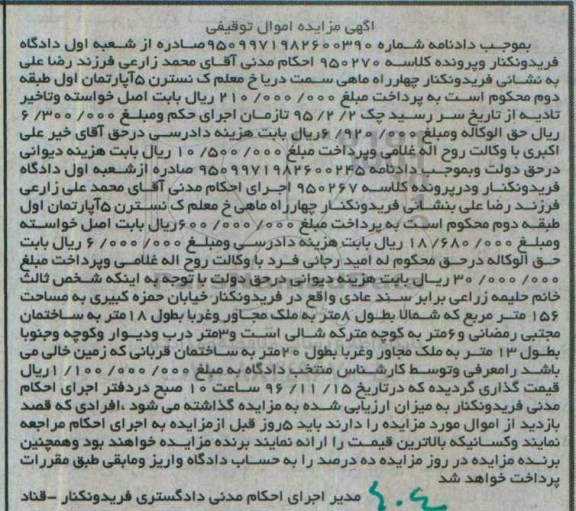 آگهی مزایده اموال توقیفی
بموجب دادنامه شماره ۹۵۰۹۹۷۱۹۸۲۶۰۰۳۹۰صادره از شعبه اول دادگاه
فریدونکنار وپرونده کلاسه ۹۵۰۲۷۰ احکام مدنی آقای محمد زارعی فرزند رضا علی
به نشانی فریدونکنار چهارراه ماهی سمت دریا خ معلم ک نسترن ۵آپارتمان اول طبقه
دوم محکوم است به پرداخت مبلغ ۲۱۰/۰۰۰/۰۰۰ ریال بابت اصل خواسته وتاخیر
تادیه از تاریخ سر رسید چک ۹۵/۲/۲ تازمان اجرای حکم ومبلغ ۶/۳۰۰/۰۰۰
ریال حق الوکاله ومبلغ ۶/۹۲۰/۰۰۰ریال بابت هزینه دادرسی درحق آقای خیر علی
اکبری با وکالت روح اله غلامی وپرداخت مبلغ ۱۰/۵۰۰/۰۰۰ ریال بابت هزینه دیوانی
درحق دولت وبموجب دادنامه ۹۵۰۹۹۷۱۹۸۲۶۰۰۲۴۵ صادره ازشعبه اول دادگاه
فریدونکنار ودرپرونده کلاسه ۹۵۰۲۶۷ اجرای احکام مدنی آقای محمد علی زارعی
فرزند رضا علی بنشانی فریدونکنار چهارراه ماهی خ معلم ک نسترن ۵آپارتمان اول
طبقه دوم محکوم است به پرداخت مبلغ ۶۰۰/۰۰۰/۰۰۰ریال بابت اصل خواسته
ومبلغ ۱۸/۶۸۰/۰۰۰ ریال بابت هزینه دادرسی ومبلغ ۶/۰۰۰/۰۰۰ ریال بابت
حق الوکاله درحق محکوم له امید رجائی فرد با وکالت روح اله غلامی وپرداخت مبلغ
۳۰/۰۰۰/۰۰۰ ریال بابت هزینه دیوانی درحق دولت با توجه به اینکه شخص ثالث
خانم حلیمه زراعی برابر سند عادی واقع در فریدونکنار خیابان حمزه کبیری به مساحت
۱۵۶ متر مربع که شمالا بطول ۸متر به ملک مجاور وغربا بطول ۱۸متر به ساختمان
مجتبی رمضانی و۶متر به کوچه مترکه شالی است و۳متر درب ودیوار وکوچه وجنوبا
بطول ۱۳ متر به ملک مجاور وغربا بطول ۲۰متر به ساختمان قربانی که زمین خالی می
باشد رامعرفی وتوسط کارشناس منتخب دادگاه به مبلغ ۱/۱۰۰/۰۰۰/۰۰۰ریال
قیمت گذاری گردیده که درتاریخ ۹۶/۱۱/۱۵ ساعت ۱۰ صبح دردفتر اجرای احکام
مدنی فریدونکنار به میزان ارزیابی شده به مزایده گذاشته می شود ،افرادی که قصد
بازدید از اموال مورد مزایده را دارند باید ۵روز قبل ازمزایده به اجرای احکام مراجعه
نمایند وکسانیکه بالاترین قیمت را ارائه نمایند برنده مزایده خواهند بود وهمچنین
برنده مزایده در روز مزایده ده درصد را به حساب دادگاه واریز ومابقی طبق مقررات
پرداخت خواهد شد
مدیر اجرای احکام مدنی دادگستری فریدونکنار -قناد